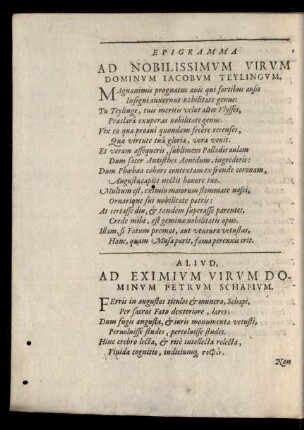 EPIGRAMMA
AD NOBILISSIMVM VIRVM
DOMINVM IACOBVM TEYLINGVM.
MAgnanimis prognatus avis qui fortibus ausis
Insigni auxerunt nobilitate genus:
Tu Teylinge, tuis meritis velut alter Vlysses,
Præclarâ exuperas nobilitate genus.
Vix ea quæ proavi quondam fecêre recenses,
Quâ virtute tuâ gloria, vera venit.
Et veram assequeris, sublimem Palladis aulam
Dum sacer Antisthes Aonidum, ingrederis:
Dum Phœbæa cohors contextam ex fronde coronam,
Augusta capiti nectit honore tuo.
Multum est, eximio maiorum stemmate nasci,
Ornarique sui nobilitate patris:
At certasse diu, & tandem superasse parentes,
Crede mihi, est gemina nobilitatis opus.
Illam, si Fatum premat, aut ventura vetustas,
Hanc, quam Musa parit, fama perennis erit.
ALIVD,
AD EXIMIVM VIRVM DO-
MINVM PETRVM SCHAPIVM.
FErris in augustos titulos & munera, Schapi,
Per sacros Fato dexteriore, lares:
Dum fugis angusta, & iuris monumenta vetusti,
Pervoluisse studes, percoluisse studes.
Hinc crebro lecta, & ritè intellecta relecta,
Vivida cognitio, iudicium,
Non